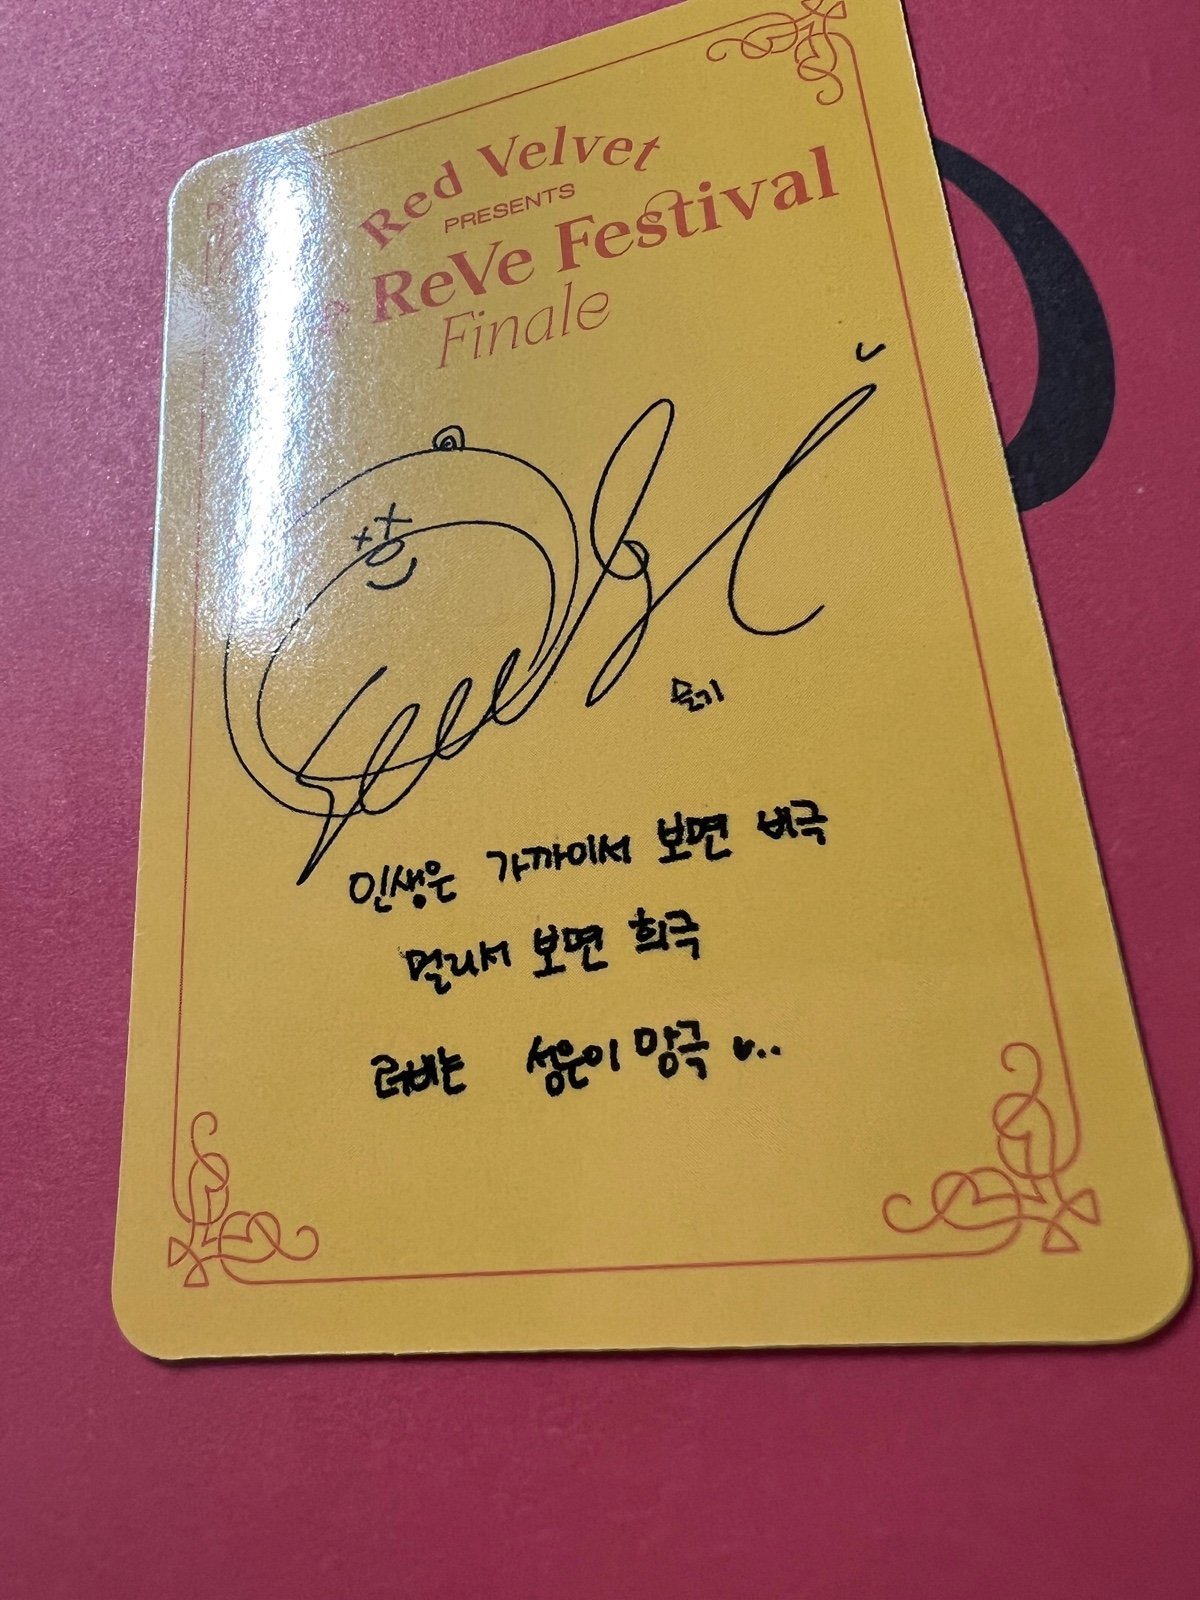 Red Velvet
PRESENTS
ReVe Festival
Finale
Seulgi
슬기
인생은 가까이서 보면 비극
멀리서 보면 희극
러비는 성은이 망극